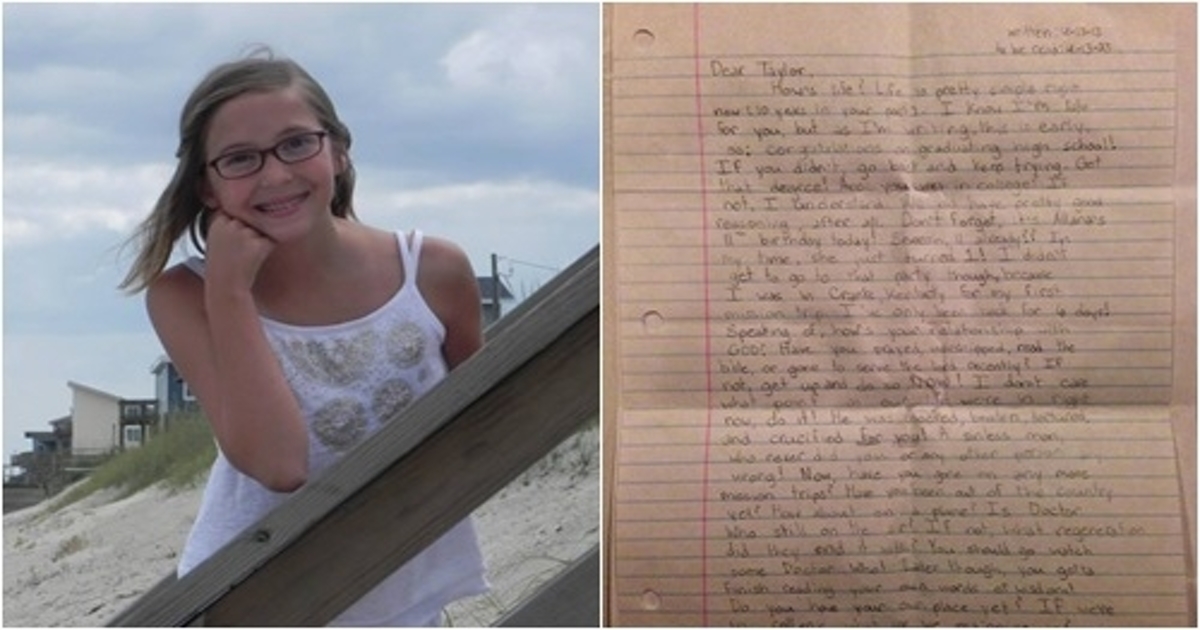 written: 4-13-13
to be read: 4-13-23
Dear Taylor,
How's life? Life is pretty simple right
now (10 years in your past). I know I'm late
for you, but as I'm writing, this is early,
so; congratulations on graduating high school!
If you didn't, go back and keep trying. Get
that degree! Are you in college? If
not, I understand. We do have pretty good
reasoning after all. Don't forget, it's Allana's
11th birthday today! Sheesh, 11 already?! In
my time, she just turned 1! I didn't
get to go to that party though, because
I was in Cranks, Kentucky for my first
mission trip. I've only been back for 6 days!
Speaking of, how's your relationship with
GOD? Have you prayed, worshipped, read the
bible, or gone to serve the lord recently? If
not, get up and do so NOW! I don't care
what point in our life we're in right
now, do it! He was mocked, beaten, tortured,
and crucified for you! A sinless man,
who never did you or any other person
wrong! Now, have you gone on any more
mission trips? Have you been out of the country
yet? How about on a plane? Is Doctor
Who still on the air? If not, what regeneration
did they end it with? You should go watch
some Doctor Who! Later though, you gotta
finish reading your own words of wisdom!
Do you have your own place yet? If we're
in college, what